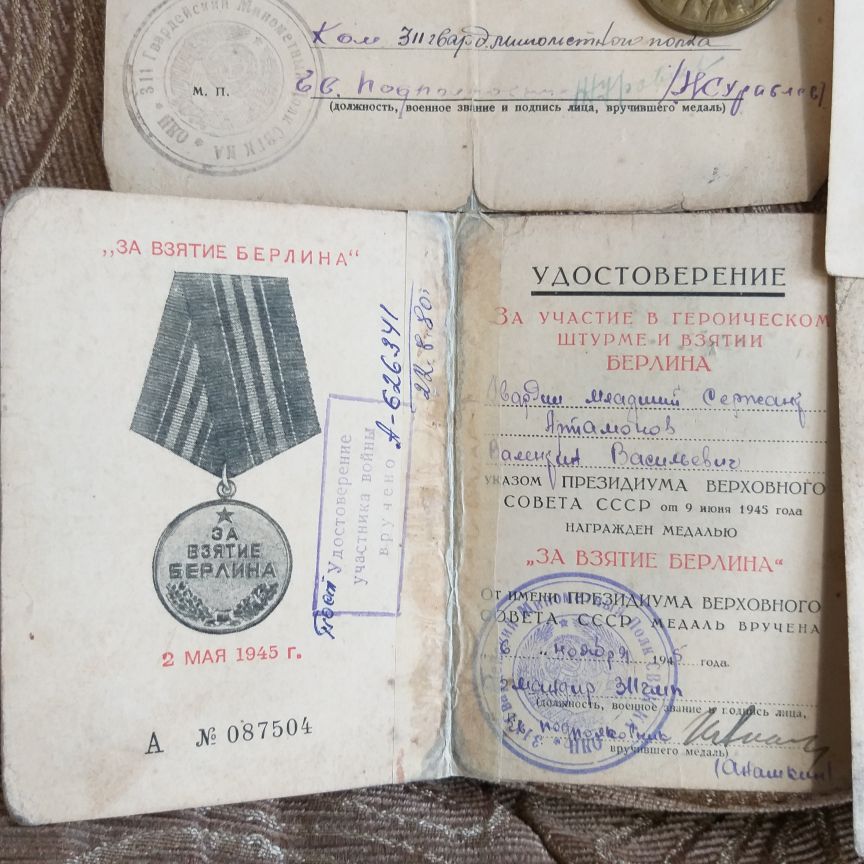 311 Гвардейский Минометный Полк СВГК КА
НКО
Ком 311 гвард. минометного полка
М. П.
гв. подполковник /Журавлев/
(должность, военное звание и подпись лица, вручившего медаль)
„ЗА ВЗЯТИЕ БЕРЛИНА“
ЗА
ВЗЯТИЕ
БЕРЛИНА
2 МАЯ 1945 г.
А № 087504
Удостоверение
участника войны
вручено А-626341
22.8.80г
УДОСТОВЕРЕНИЕ
ЗА УЧАСТИЕ В ГЕРОИЧЕСКОМ
ШТУРМЕ И ВЗЯТИИ
БЕРЛИНА
Гвардии младший Сержант
Артамонов
Валентин Васильевич
УКАЗОМ ПРЕЗИДИУМА ВЕРХОВНОГО
СОВЕТА СССР от 9 июня 1945 года
НАГРАЖДЕН МЕДАЛЬЮ
„ЗА ВЗЯТИЕ БЕРЛИНА“
ОТ ИМЕНИ ПРЕЗИДИУМА ВЕРХОВНОГО
СОВЕТА СССР МЕДАЛЬ ВРУЧЕНА
6 „ ноября 1945 года.
311 гмп
(должность, военное звание и подпись лица,
гв. подполковник
вручившего медаль)
(Анашкин)